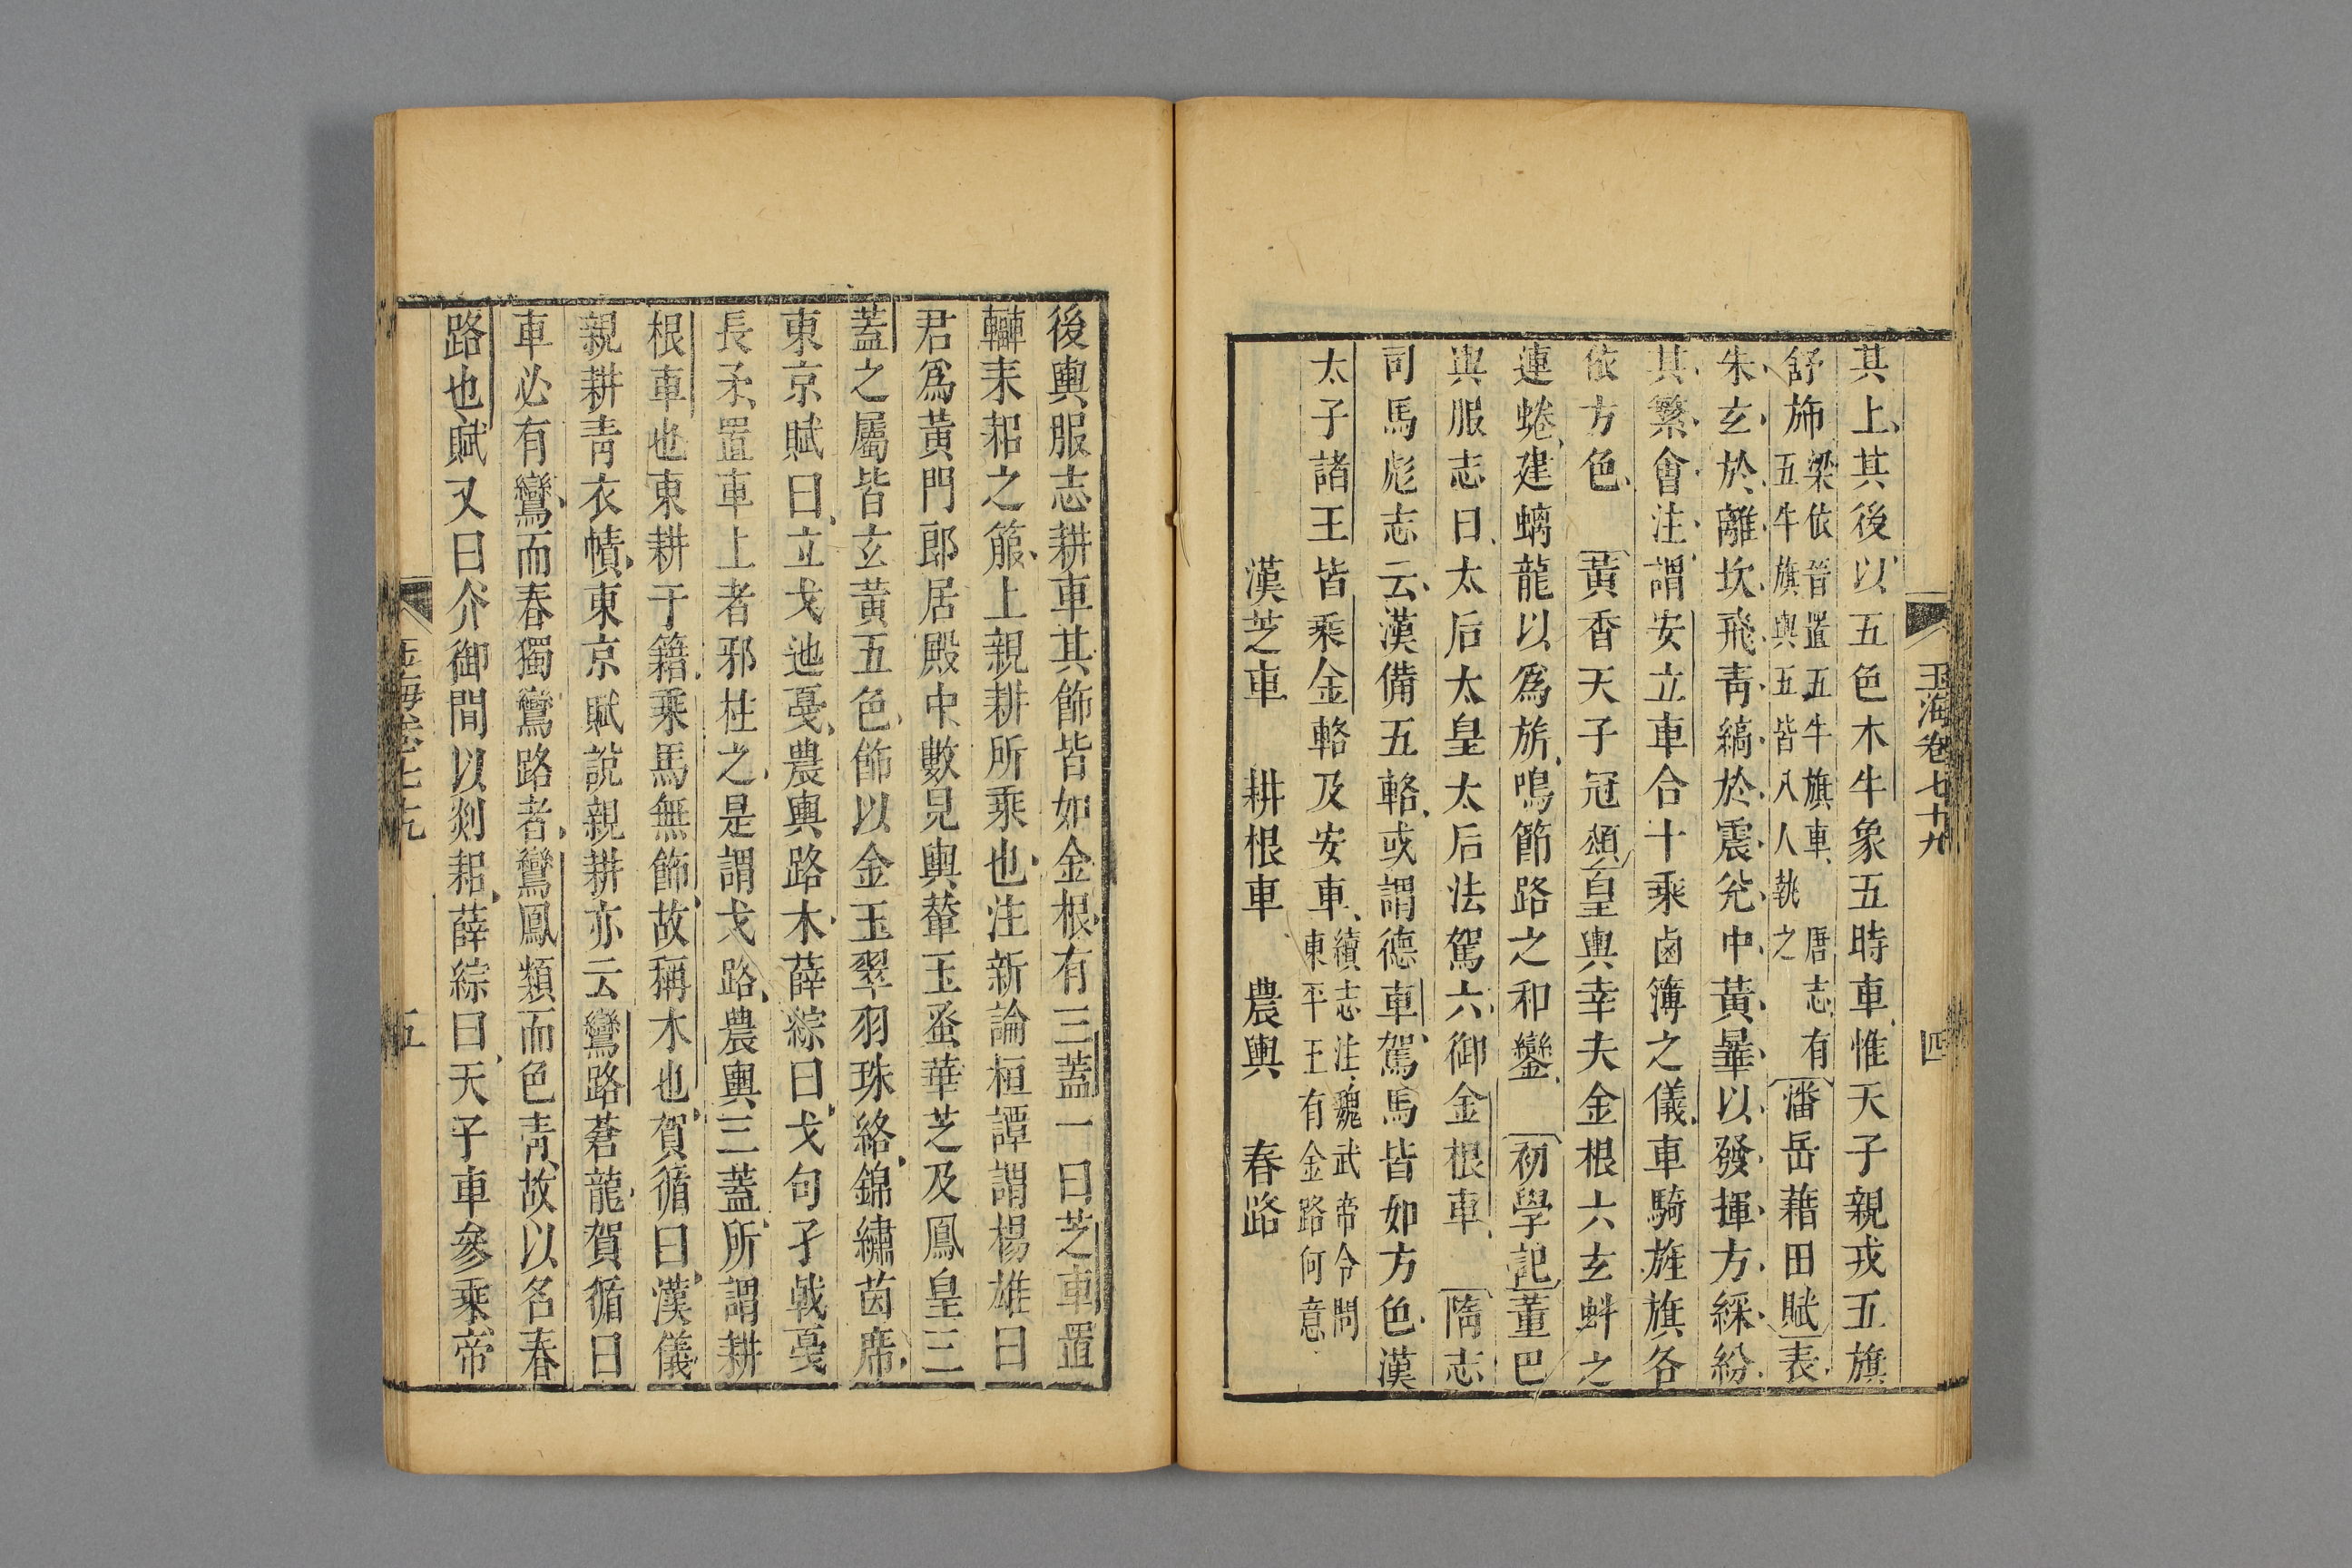 玉海卷七十九 四
其上其後以五色木牛象五時車惟天子親戎五旗
舒斾梁依晉置五牛旗車唐志有五牛旗輿五皆八人執之潘岳藉田賦表
朱玄於離坎飛青縞於震兌中黃曅以發揮方綵紛
其繁會注謂安立車合十乘鹵簿之儀車騎旌旗各
依方色 黃香天子冠頌皇輿幸夫金根六玄虯之
連蜷建螭龍以爲旂鳴節路之和鑾 初學記董巴
輿服志曰太后太皇太后法駕六御金根車 隋志
司馬彪志云漢備五輅或謂德車駕馬皆如方色漢
太子諸王皆乘金輅及安車續志注魏武帝令問東平王有金路何意
漢芝車 耕根車 農輿 春路
後輿服志耕車其飾皆如金根有三蓋一曰芝車置
轓耒耜之箙上親耕所乘也注新論桓譚謂楊雄曰
君爲黃門郎居殿中數見輿輦玉蚤華芝及鳳皇三
蓋之屬皆玄黃五色飾以金玉翠羽珠絡錦繡茵席
東京賦曰立戈迆戞農輿路木薛綜曰戈句孑戟戞
長矛置車上者邪柱之是謂戈路農輿三蓋所謂耕
根車也東耕于籍乘馬無飾故稱木也賀循曰漢儀
親耕青衣幘東京賦說親耕亦云鸞路蒼龍賀循曰
車必有鸞而春獨鸞路者鸞鳳類而色青故以名春
路也賦又曰介御間以剡耜薛綜曰天子車參乘帝
玉海卷七十九 五